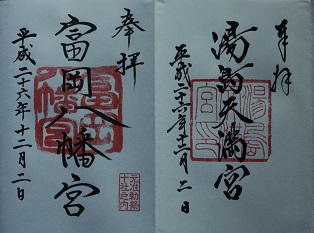 奉拝
湯島天満宮
平成二十六年十二月二日
奉拝
富岡八幡宮
平成二十六年十二月二日
元准勅祭
十社之内